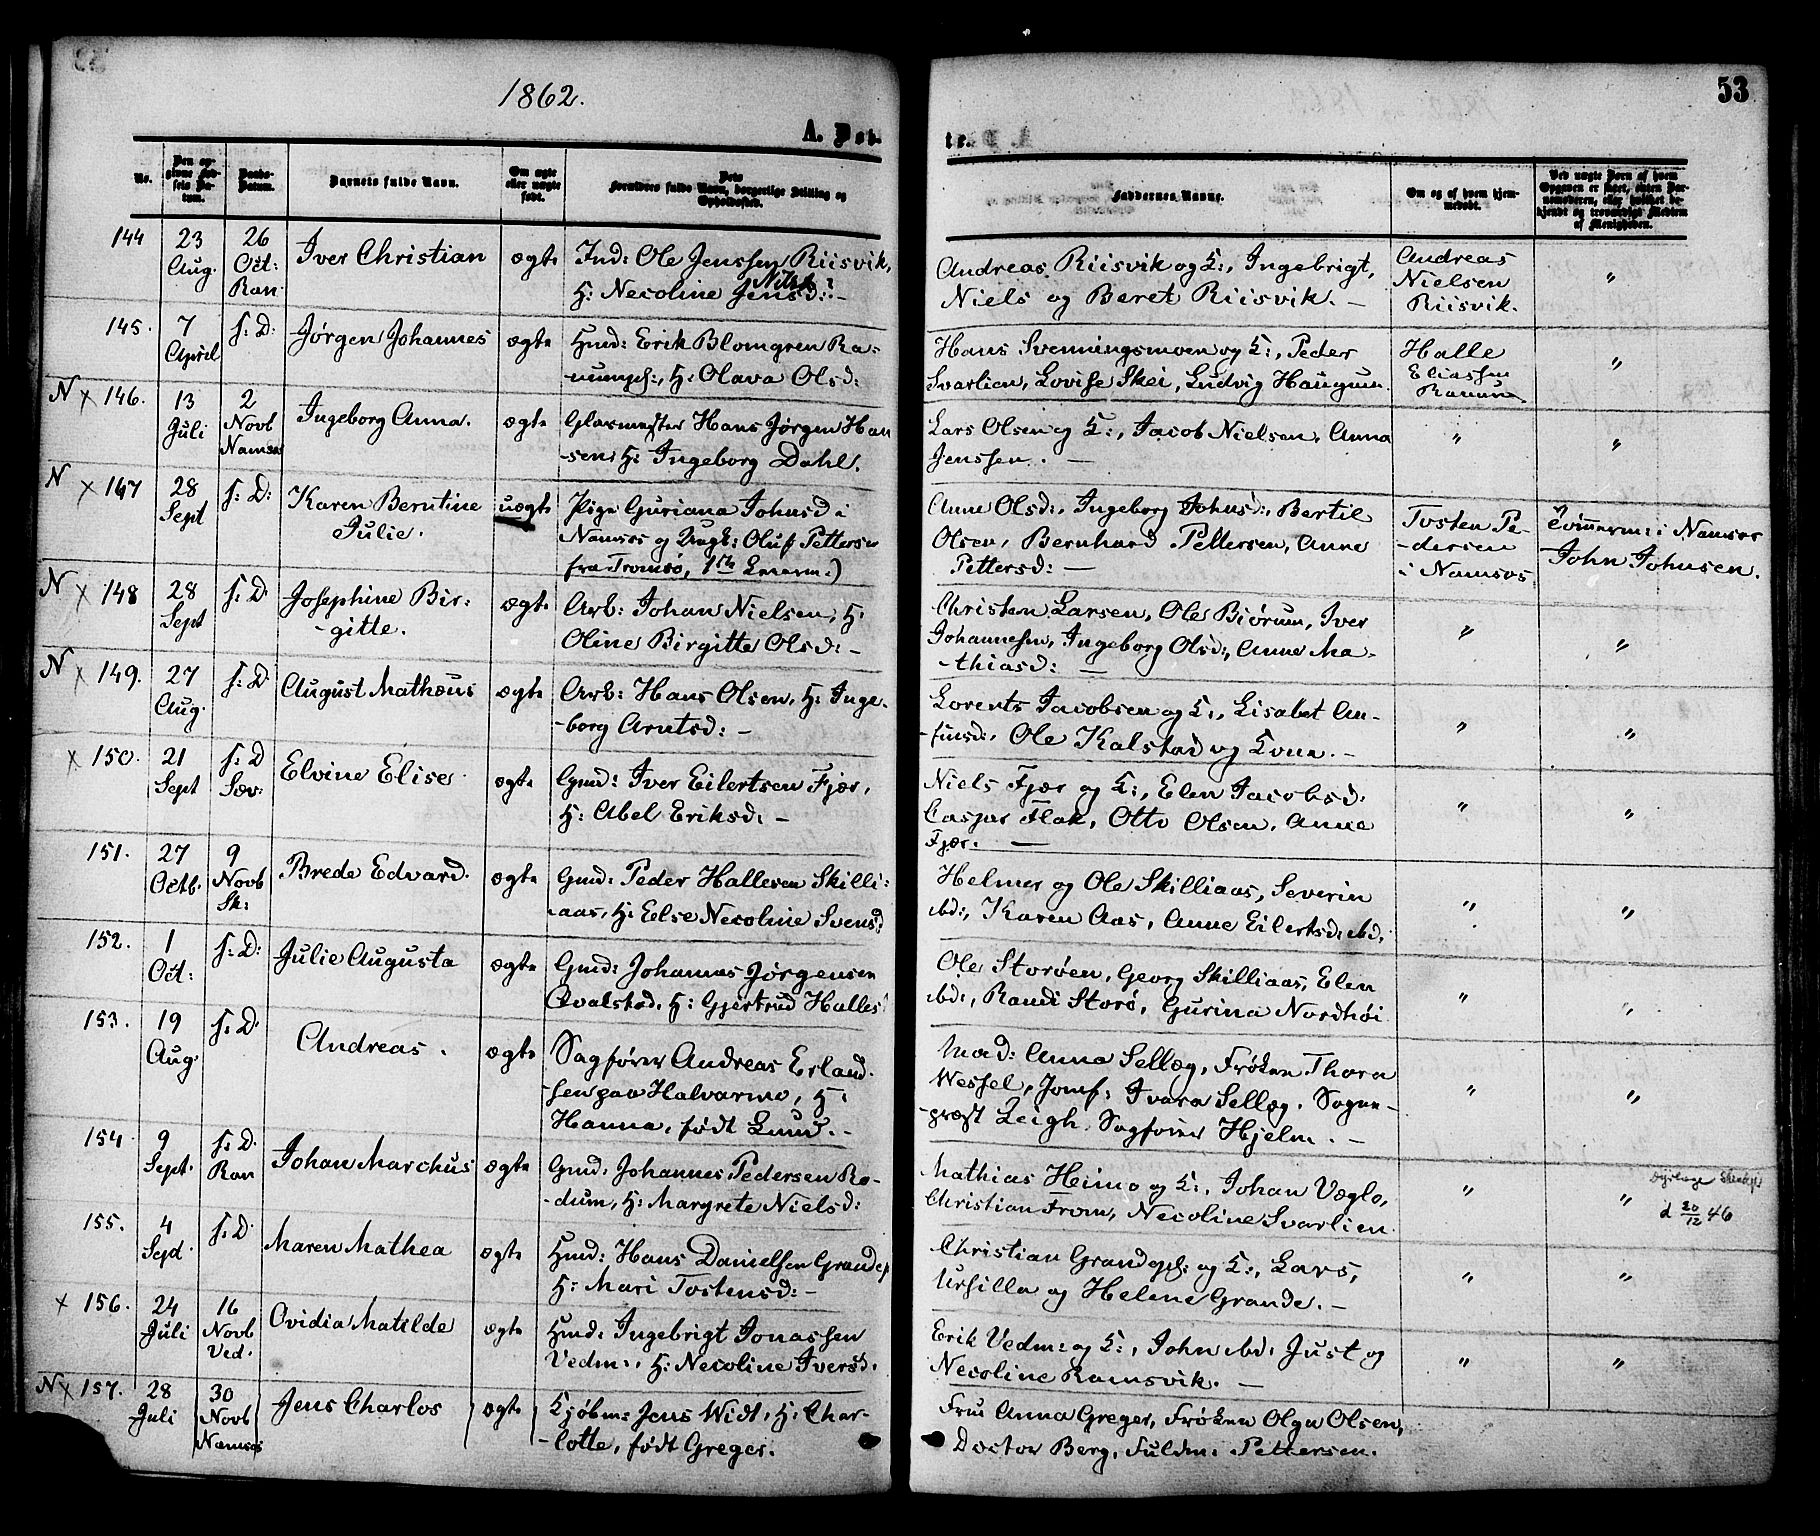 1862.
53
A. Døb-
te.
No.
Den op-
givne Fød-
sels Da-
tum.
Daabs-
Datum.
Barnets fulde Navn.
Om ægte
eller uægte
født.
Dets
Forældres fulde Navn, borgerlige Stilling og
Opholdssted.
Faddernes Navne.
Om og af hvem hjem-
medøbt.
Ved uægte Børn af hvem
Opgaven er skeet, enten Bar-
nemoderen, eller hvilket be-
kjendt og troværdigt Medlem
af Menigheden.
144
23
Aug.
26
Oct:
Ran.
Iver Christian
ægte
Ind: Ole Jenssen Riisvik,
H: Necoline Jensd: -
Andreas Riisvik og K:, Ingebrigt,
Niels og Beret Riisvik. -
Andreas
Nielsen
Riisvik.
"
145.
7
April
s: D:
Jørgen Johannes
ægte
Hmd: Erik Blomgren Ra-
numspl:, H: Olava Olsd:
Hans Svenningsmoen og K:, Peder
Svarlien, Lovise Skei, Ludvig Haugum.
Halle
Eliassen
Ranum
"
N x 146.
13
Juli
2
Novb
Namsos
Ingeborg Anna.
ægte
Glasmester Hans Jørgen Han
sen, H: Ingeborg Dahl.
Lars Olsen og K:, Jacob Nielsen, Anna
Jenssen. -
"
"
N x 147
28
Sept
s: D:
Karen Berntine
Julie.
uægte
Pige Guriana Johnsd i
Namsos og Ungk: Oluf Pettersen
fra Tromsø, 1ste Leierm:)
Anne Olsd:, Ingeborg Johnsd:, Bertil
Olsen, Bernhard Pettersen, Anne
Pettersd: -
Tosten Pe-
dersen
i Namsos
i Namsos
John Johnsen.
N x 148
28
Sept
s: D.
Josephine Bir-
-gitte.
ægte
Arb: Johan Nielsen, H:
Oline Birgitte Olsd: -
Christen Larsen, Ole Biørum, Iver
Johannesen, Ingeborg Olsd:, Anne Ma-
-thiasd: -
"
"
N x 149.
27
Aug.
s: D
August Mathæus
ægte
Arb: Hans Olsen, H: Inge-
-borg Arntsd: -
Lorents Jacobsen og K:, Lisabet An-
-finsd:, Ole Kalstad og Kone. -
"
"
x 150.
21
Sept
s: D
Sæv:
Elvine Elise.
ægte
Gmd: Iver Eilertsen Fjær,
H: Abel Eriksd: -
Niels Fjær og K:, Elen Jacobsd.
Caspar Flak, Otto Olsen, Anne
Fjær. -
"
"
151.
27
Octb.
9
Novb
Sk:
Brede Edvard.
ægte
Gmd: Peder Hallesen Skilli-
aas, H: Else Necoline Svensd
Helmer og Ole Skilliaas, Severin
ibd:, Karen Aas, Anne Eilertsd: ibd.
"
"
152.
1
Oct:
s: D:
Julie Augusta
ægte
Gmd: Johannes Jørgensen
Qvalstad, H: Gjertrud Halles
Ole Storøen, Georg Skilliaas, Elen
ibd:, Randi Storø, Gurina Nordhøi
"
"
153.
19
Aug.
s: D.
Andreas.
ægte
Sagfører Andreas Erland-
-sen paa Halvarmo, H:
Hanna, født Lund. -
Mad: Anna Sellæg, Frøken Thora
Wessel, Jomf: Ivara Sellæg, Sogne-
-præst Leigh, Sagfører Hjelm. -
"
"
154
9
Sept.
s: D.
Ran
Johan Marchus
ægte
Gmd: Johannes Pedersen Ro-
-dum, H: Margrete Nielsd:
Mathias Heimo og K:, Johan Væglo,
Christian From, Necoline Svarlien.
"
"
d 20/12 46
155.
4
Sept.
s: D.
Maren Mathea
ægte
Hmd: Hans Danielsen Grandep
H: Mari Tostensd: -
Christian Grandepl: og K:, Lars,
Ursilla og Helene Grande. -
"
"
x 156.
24
Juli
16
Novb
Ved.
Ovidia Matilde
ægte
Hmd: Ingebrigt Jonassen
Vedm:, H: Necoline Iversd.
Erik Vedm: og K:, John ibd: Just og
Necoline Ramsvik. -
"
"
N x 157.
28
Juli
30
Novb
Namsos
Jens Charlos
ægte
Kjøbm: Jens Widt, H: Char-
-lotte, født Greger.
Frue Anna Greger, Frøken Olga Olsen,
Doctor Berg, Fuldm: Pettersen.